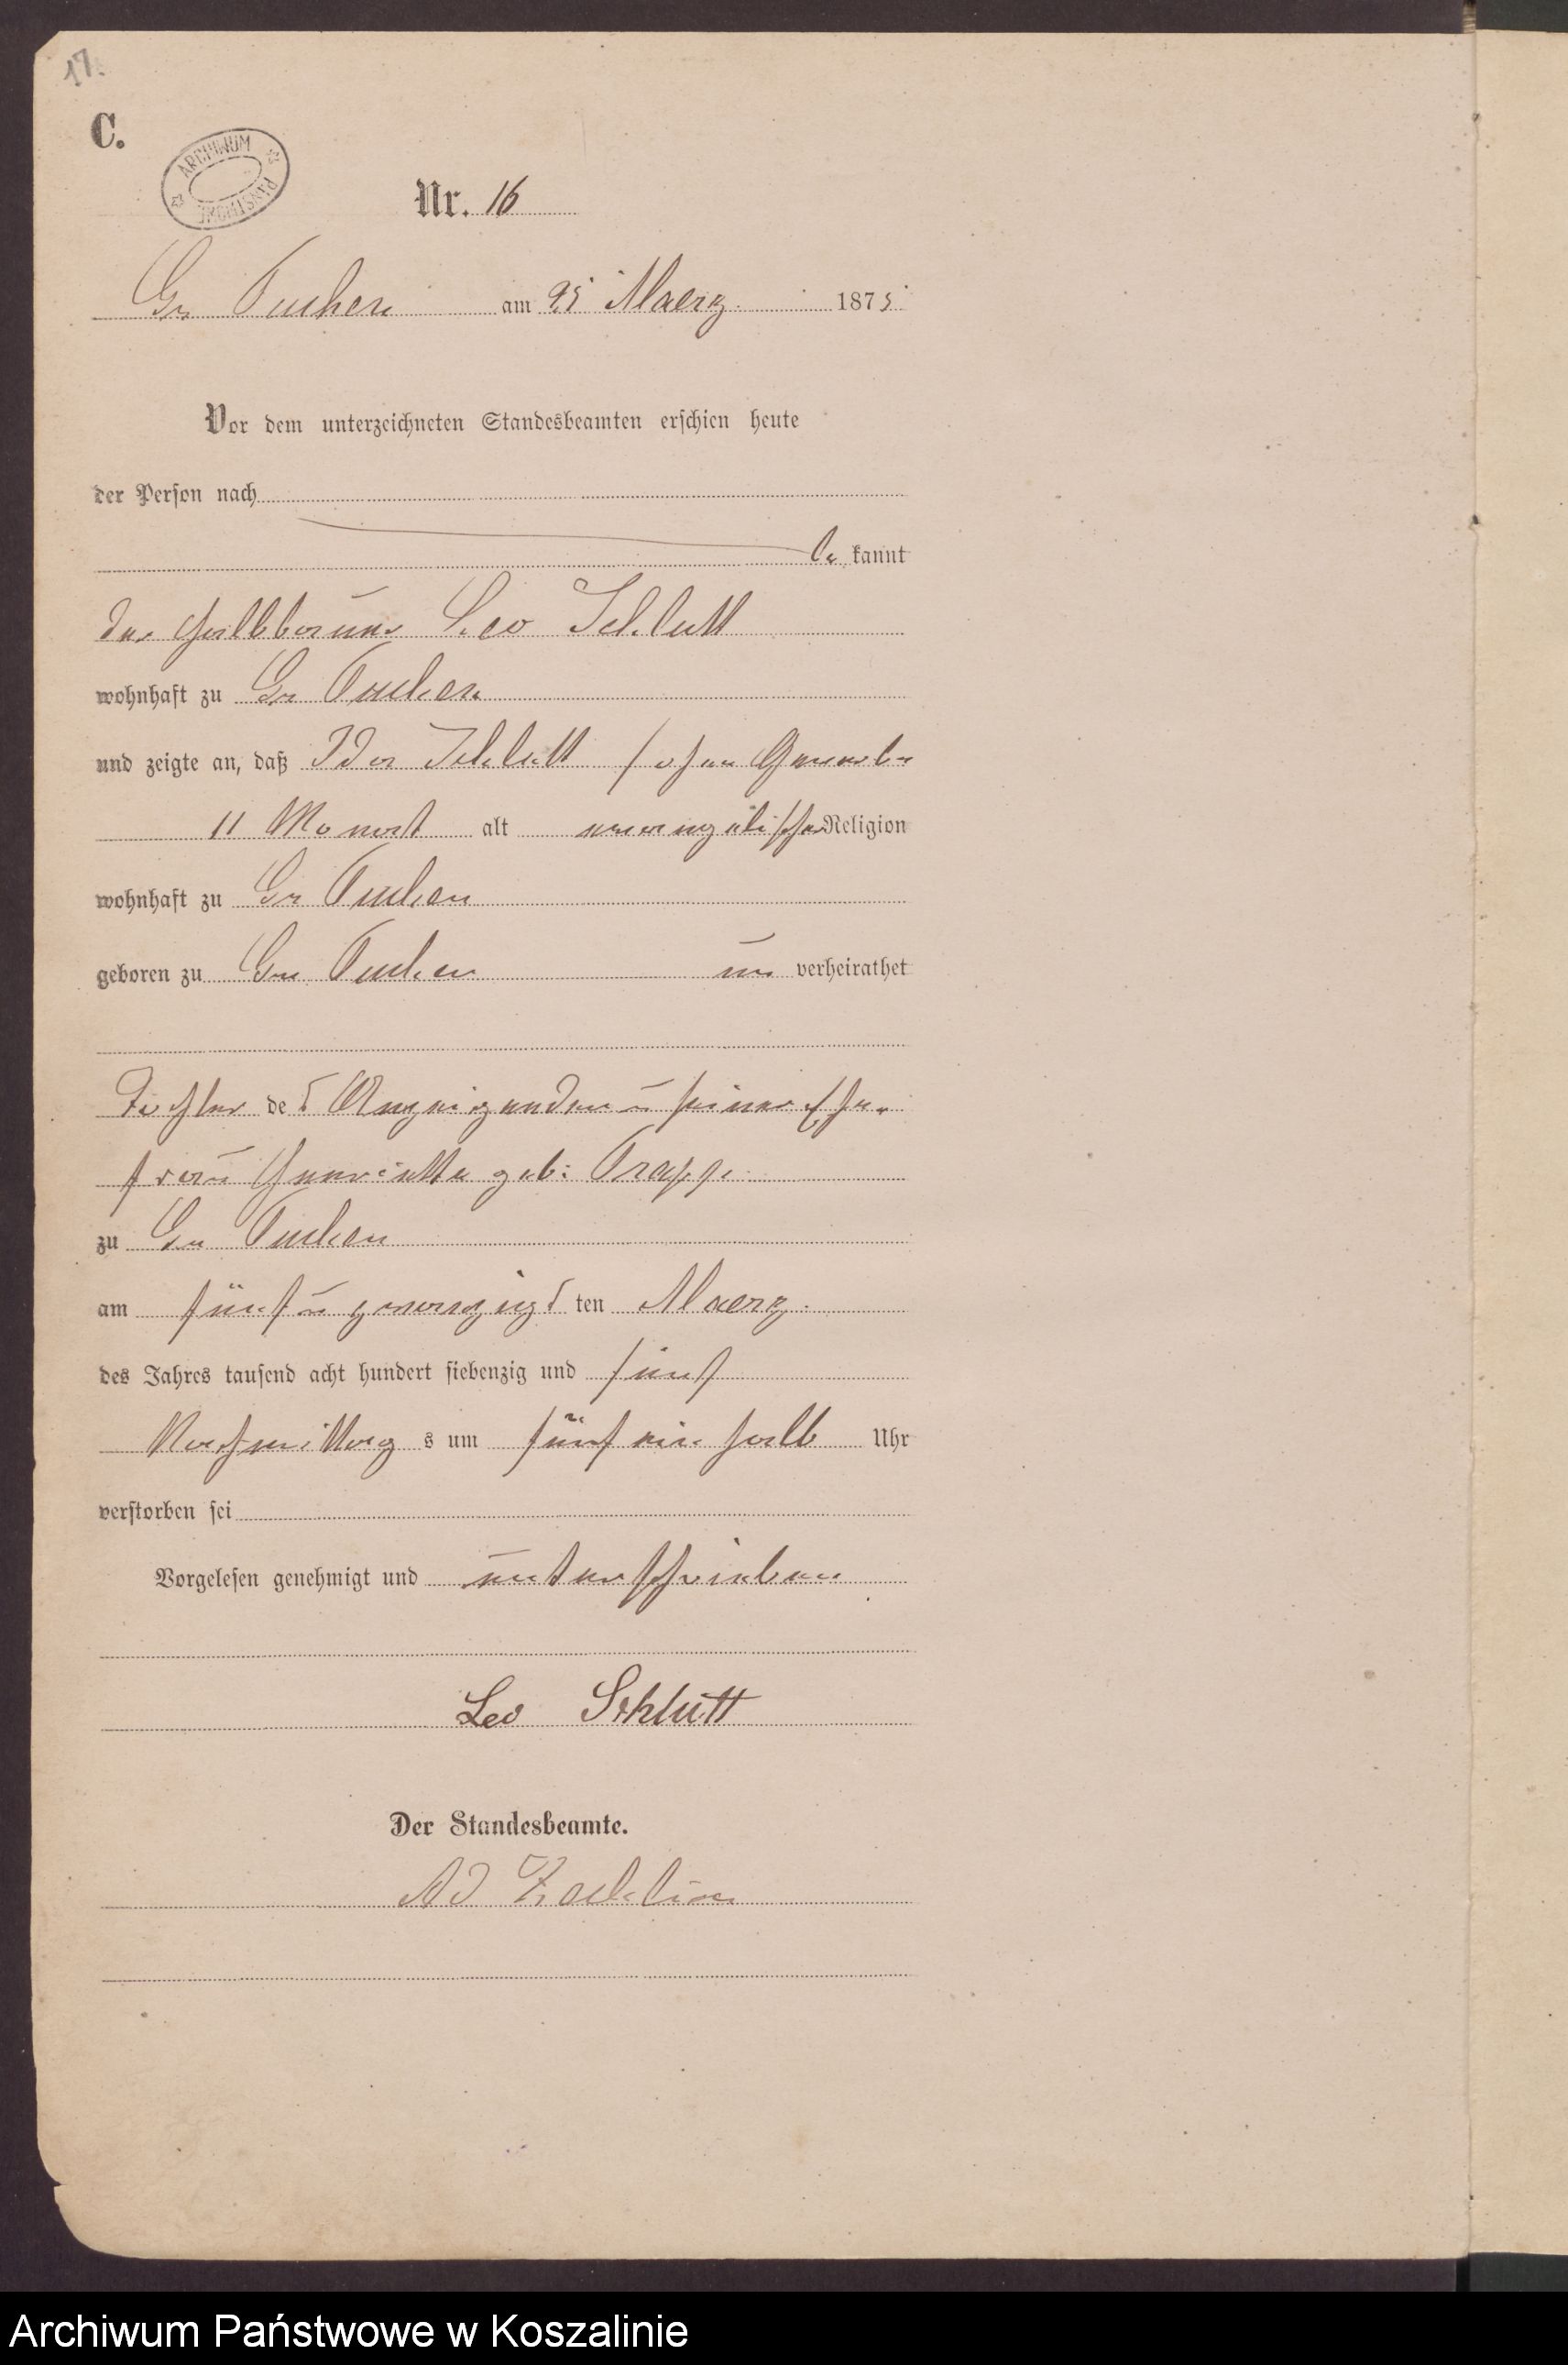 17.
C.
ARCHIWUM PAŃSTWOWE
Nr. 16
Gr Tuchen am 25 Maerz 1875
Vor dem unterzeichneten Standesbeamten erschien heute
der Person nach
be kannt
der Halbbauer Leo Schlutt
wohnhaft zu Gr Tuchen
und zeigte an, daß Ida Schlutt ohne Gewerbe
11 Monat alt evangelischer Religion
wohnhaft zu Gr Tuchen
geboren zu Gr Tuchen un verheirathet
Tochter des Anzeigenden u seiner Ehe-
frau Henriette geb: Trapp
zu Gr Tuchen
am fünf u zwanzigs ten Maerz
des Jahres tausend acht hundert siebenzig und fünf
Nachmittag s um fünf ein halb Uhr
verstorben sei
Vorgelesen genehmigt und unterschrieben
Leo Schlutt
Der Standesbeamte.
Archiwum Państwowe w Koszalinie